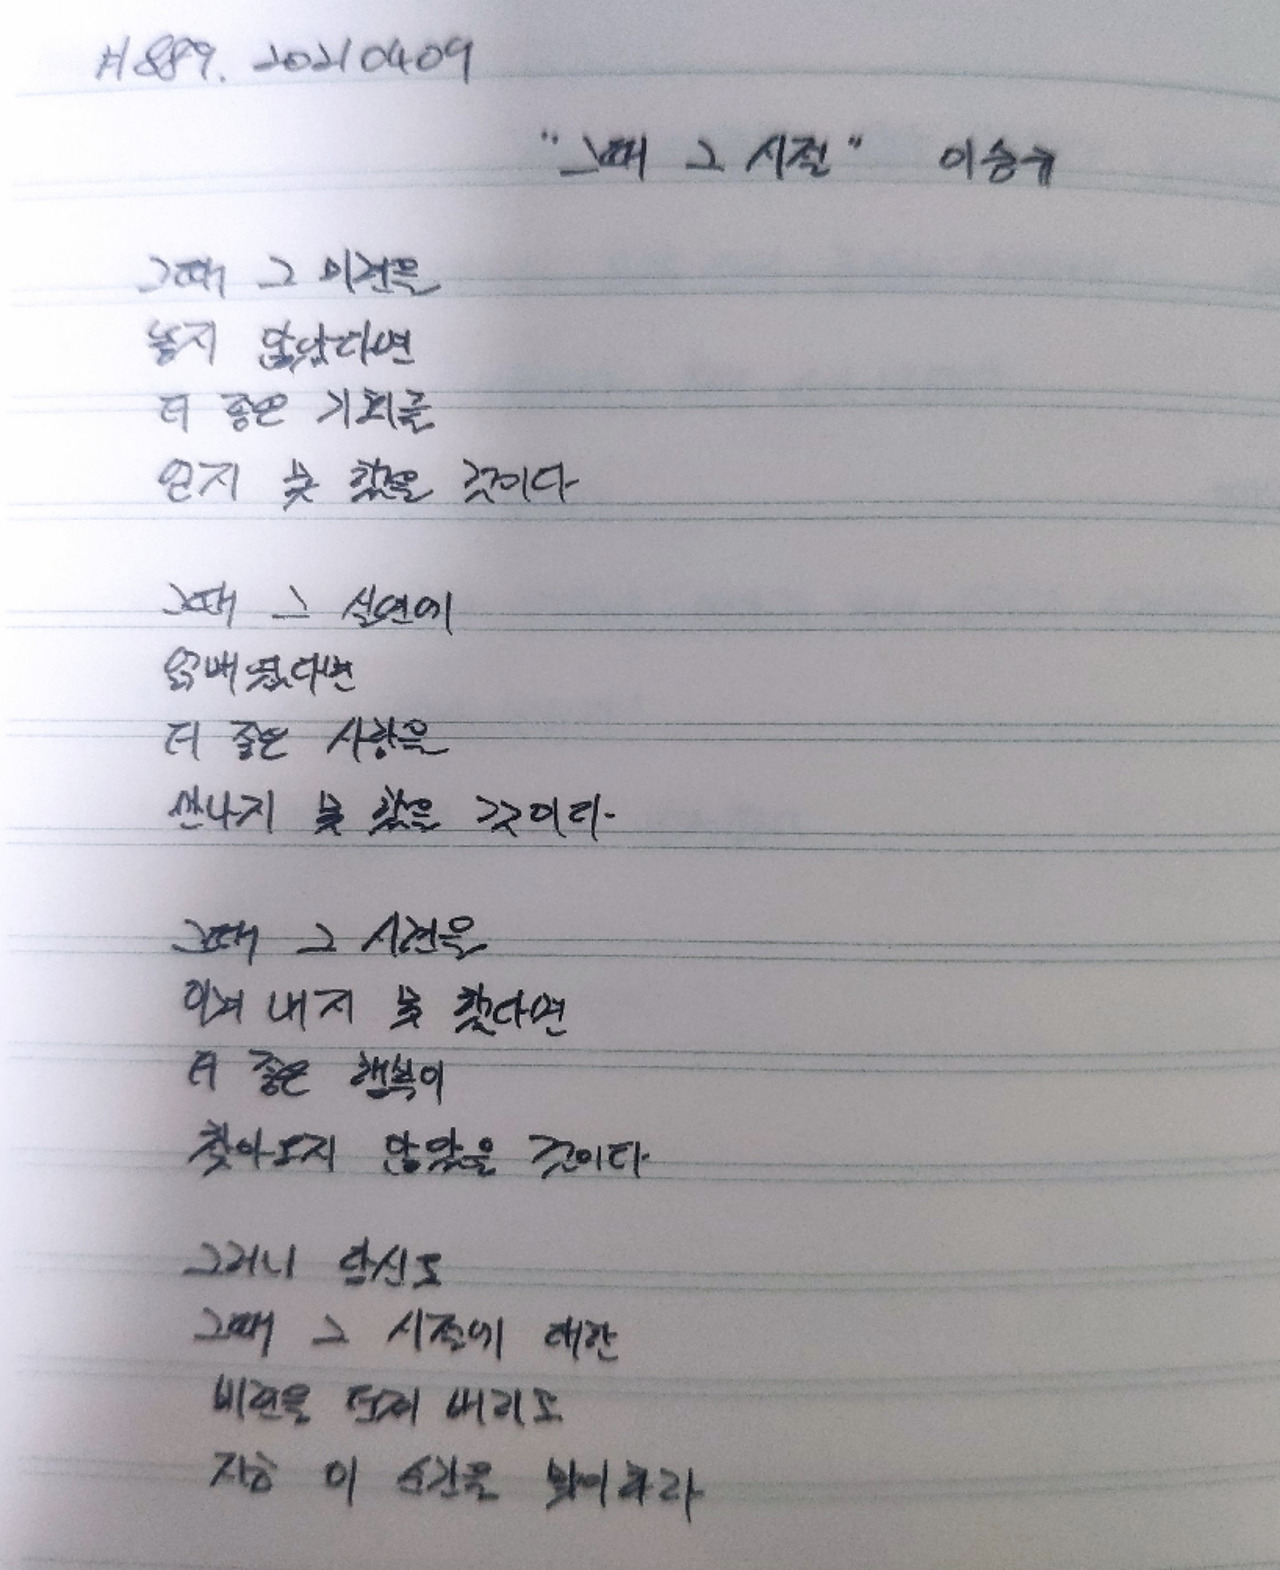 #889. 20210409
"그때 그 시절" 이승규
그때 그 미련을
놓지 않았다면
더 좋은 기회를
얻지 못 했을 것이다
그때 그 실연에
얽매였다면
더 좋은 사랑을
만나지 못 했을 것이다
그때 그 시련을
이겨 내지 못 했다면
더 좋은 행복이
찾아오지 않았을 것이다
그러니 당신도
그때 그 시절에 대한
미련을 던져 버리고
지금 이 순간을